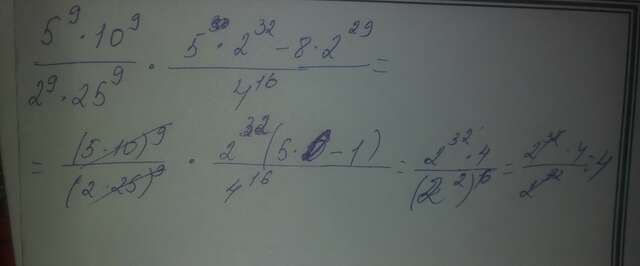 5⁹·10⁹ / 2⁹·25⁹ · 5·2³² − 8·2²⁹ / 4¹⁶ =
= (5·10)⁹ / (2·25)⁹ · 2³²(5· − 1) / 4¹⁶ = 2³²·4 / (2²)¹⁶ = 2³²·4 / 2³² = 4